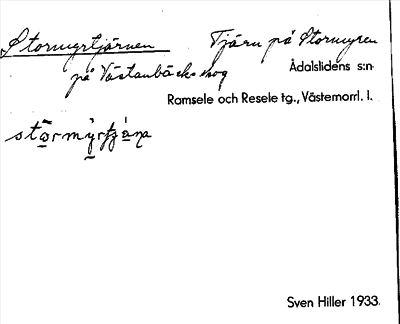 Stormyrtjärnen Tjärn på Stormyren
på Västanbäcks skog Ådalslidens s:n
Ramsele och Resele tg., Västernorrl. l.
stōrmȳrtjäṇa
Sven Hiller 1933.